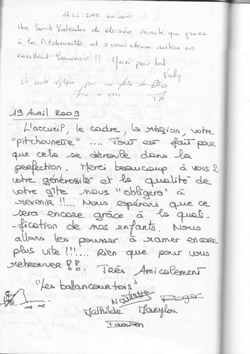 Une Saint Valentin de dernière minute que grâce
à la Pitchounette et
excellent souvenir !! Merci pour tout
19 Avril 2009
L'accueil, le cadre, la région, votre
"pitchounette" .... Tout est fait pour
que cela se déroule dans la
perfection. Merci beaucoup à vous 2
votre générosité et la qualité de
votre gîte nous "obligera" à
revenir !!... Nous espérons que ce
sera encore grâce à la quali-
fication de nos enfants. Nous
allons les pousser à ramer encore
plus vite !!!... Rien que pour vous
retrouver !!. Très Amicalement
"Les ballancourtois"
Nathalie Roger
Mathilde Marylou
Damien